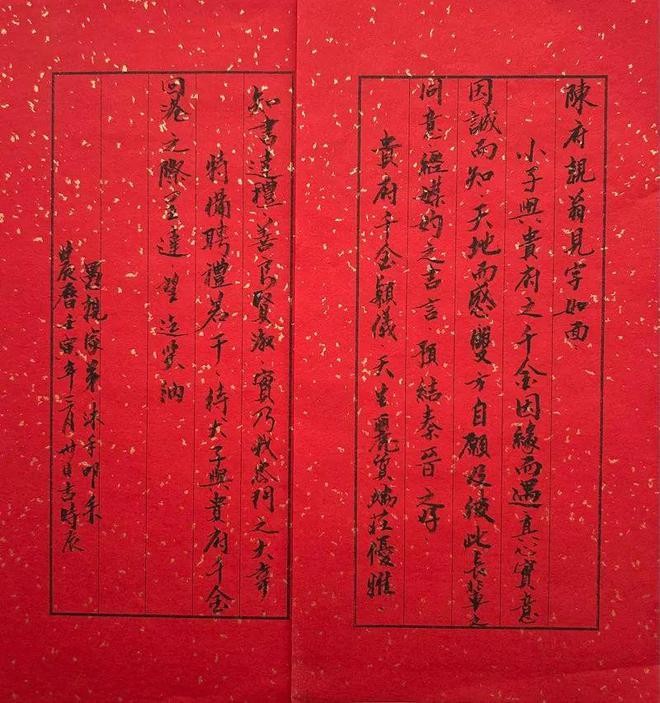 陳府親翁見字如面.
小子與貴府之千金因緣而遇真心實意
因誠而知天地而感雙方自願及彼此長輩之
同意.經媒妁之吉言.預結秦晉之好
貴府千金穎儀天生麗質端莊優雅.
知書達禮.善良賢淑實乃我忠門之大幸.
特備聘禮若干.待犬子與貴府千金
回港之際呈達望造笑納
男親家弟沐手叩禾
農曆壬寅年二月廿日吉時辰